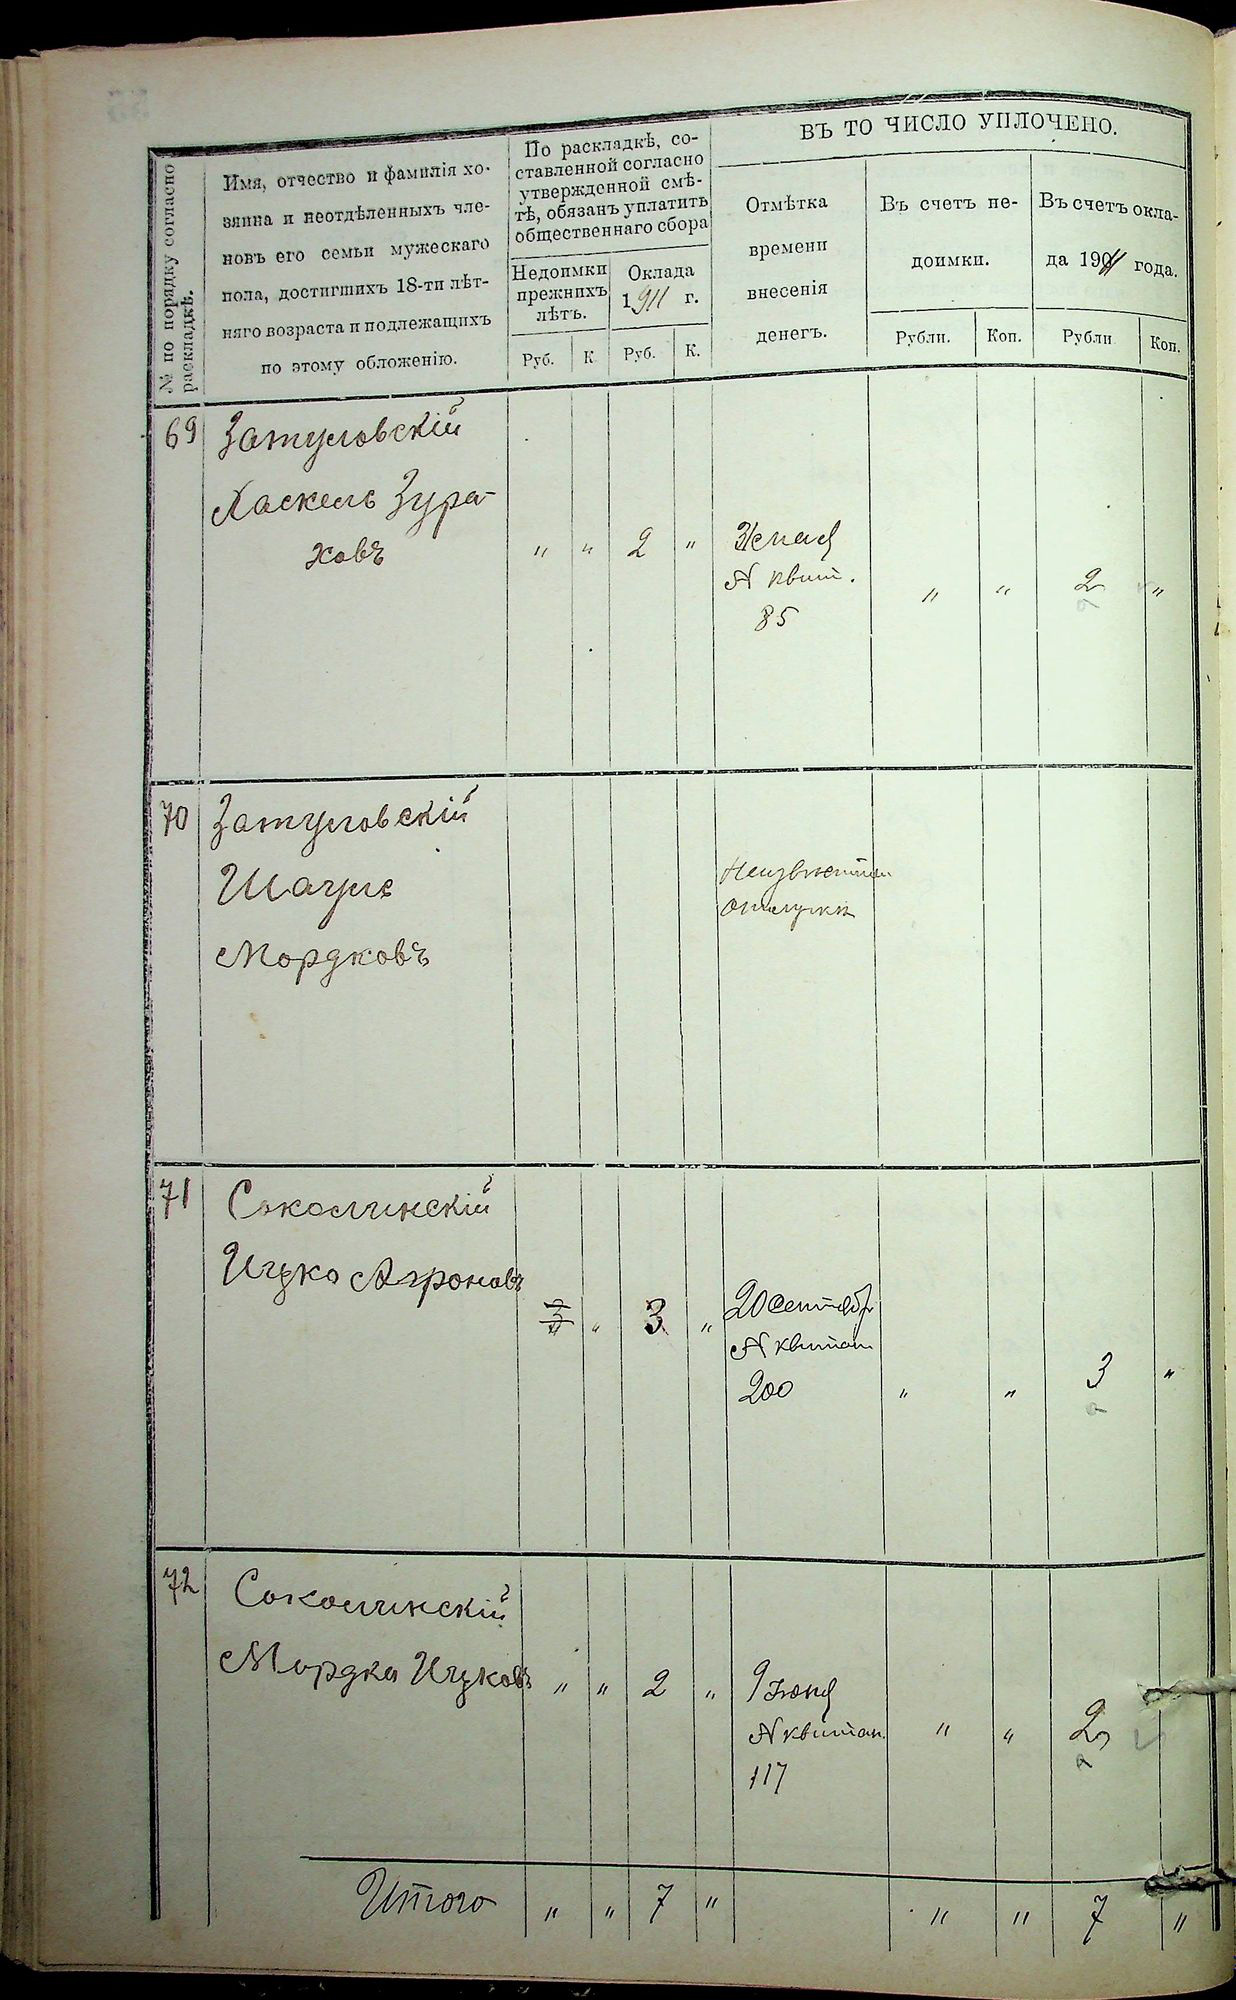 ВЪ ТО ЧИСЛО УПЛОЧЕНО.
№ по порядку согласно
раскладкѣ.
Имя, отчество и фамилія хо-
зяина и неотдѣленныхъ чле-
новъ его семьи мужескаго
пола, достигшихъ 18-ти лѣт-
няго возраста и подлежащихъ
по этому обложенію.
По раскладкѣ, со-
ставленной согласно
утвержденной смѣ-
тѣ, обязанъ уплатить
общественнаго сбора
Недоимки
прежнихъ
лѣтъ.
Оклада
1911 г.
Руб. К. Руб. К.
Отмѣтка
времени
внесенія
денегъ.
Въ счетъ не-
доимки.
Въ счетъ окла-
да 1911 года.
Рубли. Коп. Рубли Коп.
69 Затуловскій
Хаскель Зура-
ховъ
" " 2 "
31 мая
№ квит.
85
" " 2 "
70 Затуловскій
Шауль
Мордковъ
Неизвѣстн
отлучки
71 Соколинскій
Ицко Ароновъ
3 " 3 "
20 Сентяб
№ квитан
200
" " 3 "
72 Соколинскій
Мордка Ицковъ
" " 2 "
9 Іюня
№ квитан.
117
" " 2 "
Итого " " 7 " " " 7 "